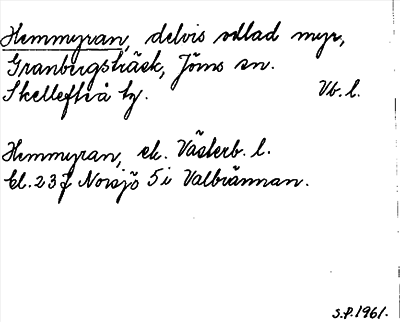 Hemmyran, delvis odlad myr,
Granbergsträsk, Jörns sn.
Skellefteå tg. Vb. l.
Hemmyran, ek. Västerb. l.
bl. 237 Norsjö 5 i Valbrännan.
S.P. 1961.